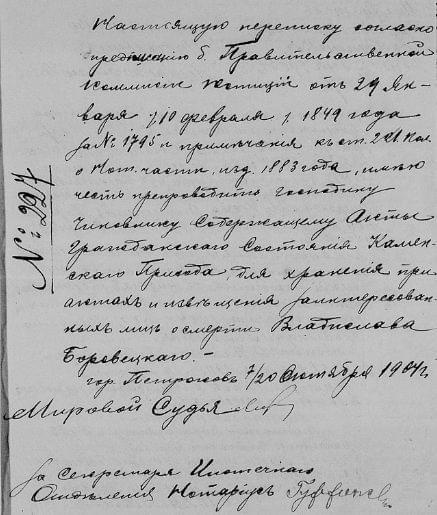 № 227
Настоящую переписку согласно
предписанію б. Правительственной
Коммисіи Юстиціи отъ 29 Ян-
варя / 10 февраля / 1849 года
за № 1795 и примѣчанія къ ст. 221 Пол.
о Нот. части, изд. 1883 года, имѣю
честь препроводить Господину
Чиновнику Содержащему Акты
Гражданскаго Состоянія Камен-
скаго Прихода, для храненія при
актахъ и извѣщенія заинтересован-
ныхъ лицъ о смерти Владислава
Боровецкаго. –
гор. Петроковъ 7/20 Октября 1904 г.
Мировой Судья
за Секретаря Ипотечнаго
Отдѣленія Нотаріусъ